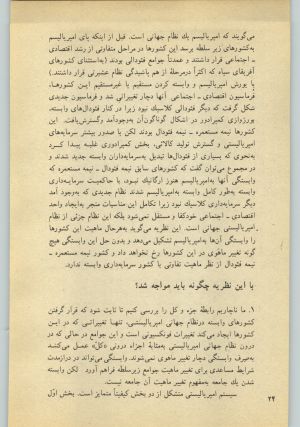 می‌گویند که امپریالیسم یک نظام جهانی است. قبل از اینکه پای امپریالیسم
به‌کشورهای زیر سلطه برسد این کشورها در مراحل متفاوتی از رشد اقتصادی
ـ اجتماعی قرار داشتند و عمدتاً جوامع فئودالی بودند (به‌استثنای کشورهای
آفریقای سیاه که اکثراً درمرحلهٔ از هم پاشیدگی نظام عشیرتی قرار داشتند.)
با یورش امپریالیسم و وابسته کردن مستقیم یا غیرمستقیم این کشورها،
فرماسیون اقتصادی ـ اجتماعی آنها دچار تغییراتی شد و فرماسیون جدیدی
شکل گرفت که دیگر فئودالی کلاسیک نبود زیرا در کنار فئودال‌های وابسته،
بورژوازی کمپرادور در اشکال گوناگون آن به‌وجودآمد و گسترش‌یافت. این
کشورها نیمه مستعمره ـ نیمه فئودال بودند لکن با صدور بیشتر سرمایه‌های
امپریالیستی و گسترش تولید کالائی، بخش کمپرادوری غلبه پیدا کرد
به‌نحوی که بسیاری از فئودال‌ها تبدیل به‌سرمایه‌داران وابسته جدید شدند و
در مجموع می‌توان گفت که کشورهای سابق نیمه فئودال ـ نیمه مستعمره که
وابستگی آنها به‌امپریالیسم هنوز ارگانیک نبود، با حاکمیت سرمایه‌داری
وابسته به‌طور کامل وابسته به‌امپریالیسم شدند. نظام جدیدی که به‌وجود آمد
دیگر سرمایه‌داری کلاسیک نبود زیرا تکامل این مناسبات منجر به‌ایجاد واحد
اقتصادی ـ اجتماعی خودکفا و مستقل نمی‌شود بلکه این نظام جزئی از نظام
امپریالیستی جهانی است. این نظریه می‌گوید به‌هرحال ماهیت این کشورها
را وابستگی آن‌ها به‌امپریالیسم تشکیل می‌دهد و بدون حل این وابستگی هیچ
گونه تغییر ماهوی در این کشورها رخ نخواهد داد و کشور نیمه مستعمره ـ
نیمه فئودال از نظر ماهیت تفاوتی با کشور سرمایه‌داری وابسته ندارد.
با این نظریه چگونه باید مواجه شد؟
۱. ما ناچاریم رابطهٔ جزء و کل را بررسی کنیم تا ثابت شود که قرار گرفتن
کشورهای وابسته درنظام جهانی امپریالیستی، تنها تغییراتی که در این
کشورها ایجاد می‌کند تغییرات فونکسیونی است و این جوامع در حالی که در
درون نظام جهانی امپریالیستی به‌مثابهٔ اجزاء درونی «کل» عمل می‌کنند
به‌صرف وابستگی دچار تغییر ماهوی نمی‌شوند. وابستگی می‌تواند در درازمدت
شرایط مساعدی برای تغییر ماهیت جوامع زیرسلطه فراهم آورد لکن وابسته
شدن یک جامعه به‌مفهوم تغییر ماهیت آن جامعه نیست.
سیستم امپریالیستی متشکل از دو بخش کیفیتاً متمایز است. بخش اول
۲۴